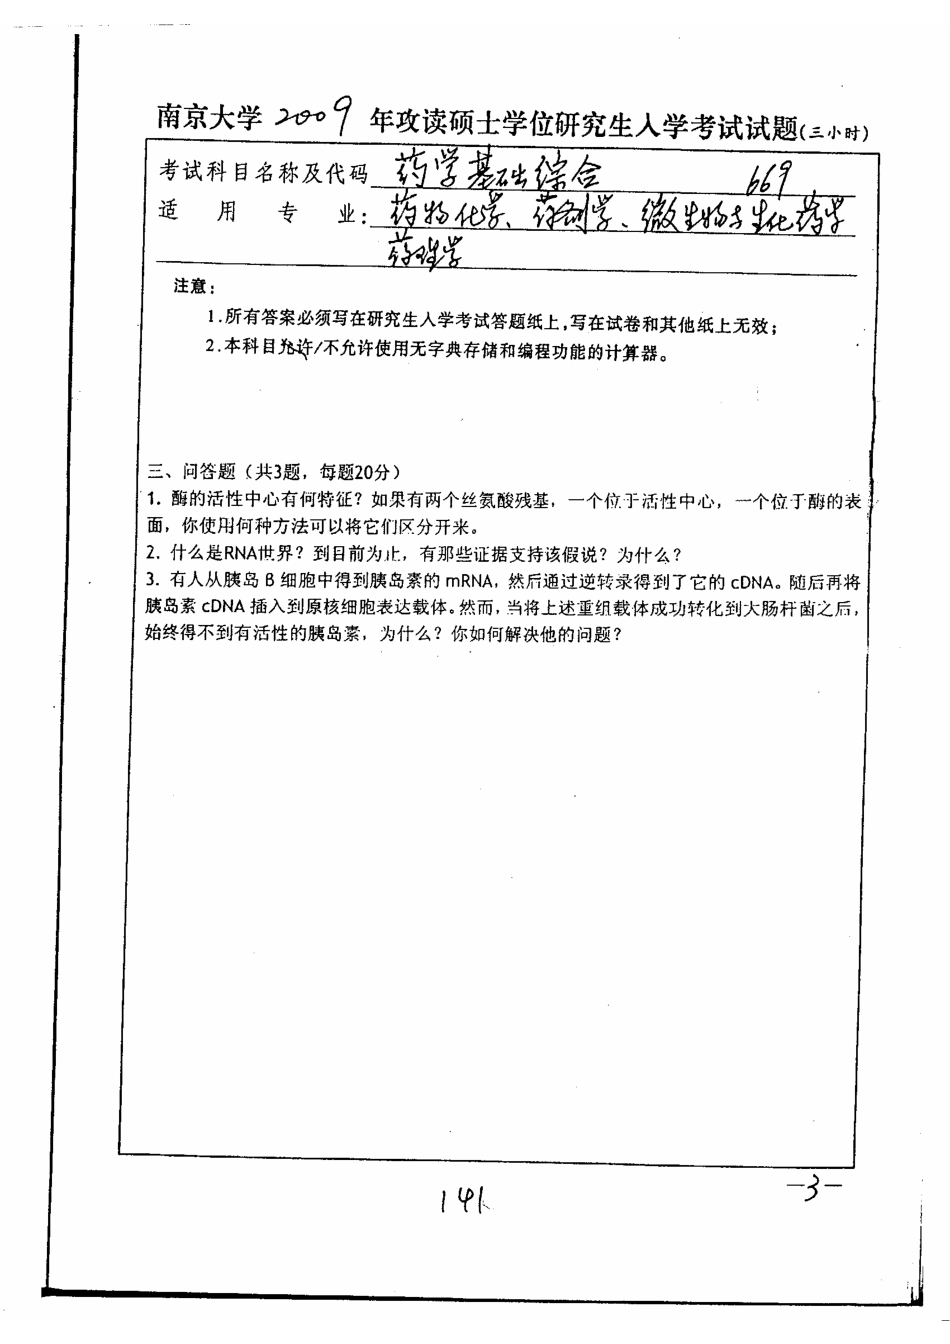 南京大学 2009 年攻读硕士学位研究生入学考试试题(三小时)
考试科目名称及代码 药学基础综合 669
适用专业：药物化学、药剂学、微生物与生化药学
药理学
注意：
1.所有答案必须写在研究生入学考试答题纸上,写在试卷和其他纸上无效；
2.本科目允许/不允许使用无字典存储和编程功能的计算器。
三、问答题（共3题，每题20分）
1. 酶的活性中心有何特征？如果有两个丝氨酸残基，一个位于活性中心，一个位于酶的表
面，你使用何种方法可以将它们区分开来。
2. 什么是RNA世界？到目前为止，有那些证据支持该假说？为什么？
3. 有人从胰岛 B 细胞中得到胰岛素的 mRNA，然后通过逆转录得到了它的 cDNA。随后再将
胰岛素 cDNA 插入到原核细胞表达载体。然而，当将上述重组载体成功转化到大肠杆菌之后，
始终得不到有活性的胰岛素，为什么？你如何解决他的问题？
—3—